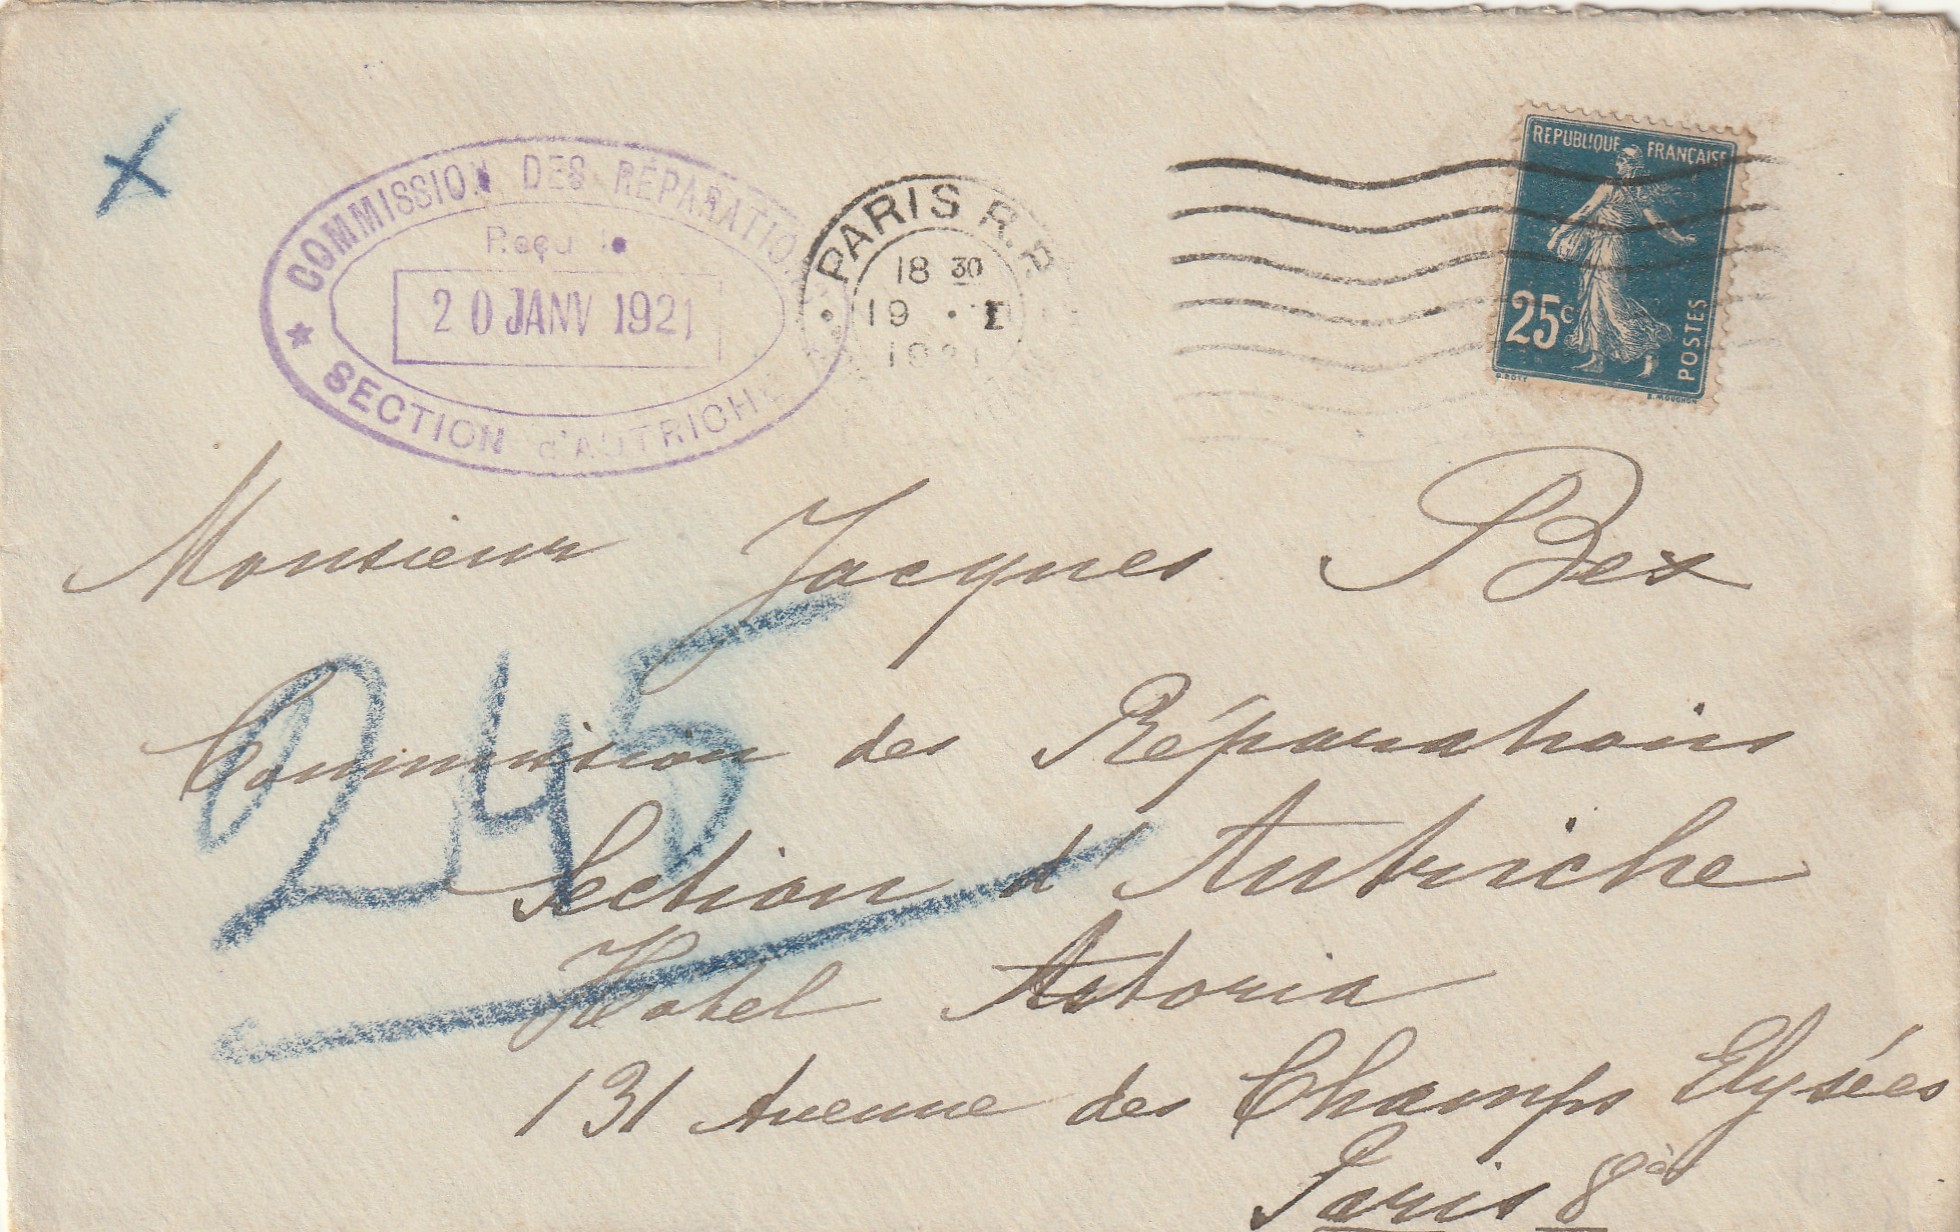 COMMISSION DES RÉPARATIONS
Reçu le
20 JANV 1921
SECTION d'AUTRICHE
PARIS R.P.
18 30
19 · I
1921
REPUBLIQUE FRANÇAISE
25c
POSTES
O. ROTY
E. MOUCHON
Monsieur Jacques Bex
Commission des Réparations
245
Section d'Autriche
Hotel Astoria
131 Avenue des Champs Elysées
Paris 8è